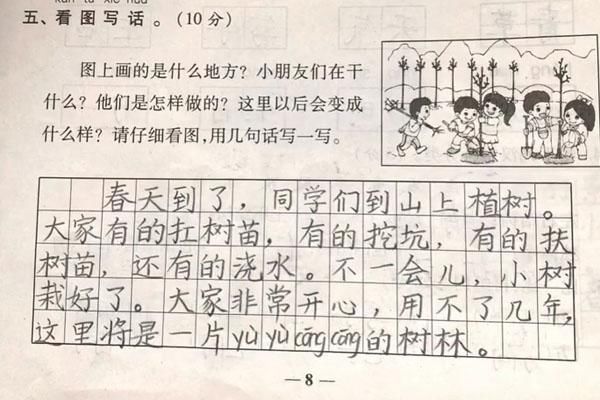 kàn tú xiě huà
五、看图写话。(10分)
图上画的是什么地方？小朋友们在干
什么？他们是怎样做的？这里以后会变成
什么样？请仔细看图，用几句话写一写。
春天到了，同学们到山上植树。
大家有的扛树苗，有的挖坑，有的扶
树苗，还有的浇水。不一会儿，小树
栽好了。大家非常开心，用不了几年，
这里将是一片yùyùcōngcōng的树林。
— 8 —